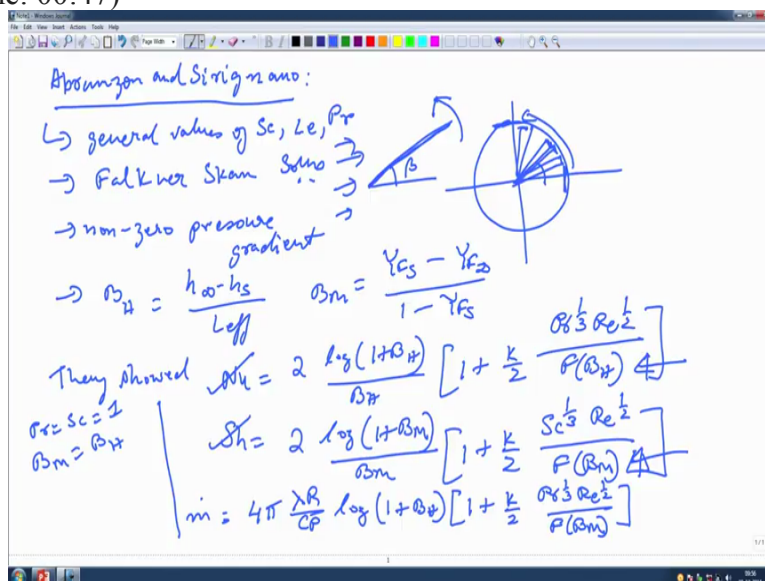 e: 00:47)
Note1 - Windows Journal
File Edit View Insert Actions Tools Help
Page Width
B I
Abramzon and Sirignano:
↳ general values of Sc, Le, Pr
→ Falkner Skan Solns
→ non-zero pressure gradient
β
→ B_H = (h_∞ - h_s) / L_eff    B_M = (Y_Fs - Y_F∞) / (1 - Y_Fs)
They showed Nu = 2 log(1+B_H) / B_H [1 + k/2 Pr^1/3 Re^1/2 / F(B_H)]
Pr = Sc = 1
B_M = B_H
Sh = 2 log(1+B_M) / B_M [1 + k/2 Sc^1/3 Re^1/2 / F(B_M)]
ṁ = 4π λR/CP log(1+B_H) [1 + k/2 Pr^1/3 Re^1/2 / F(B_M)]
1/1
1